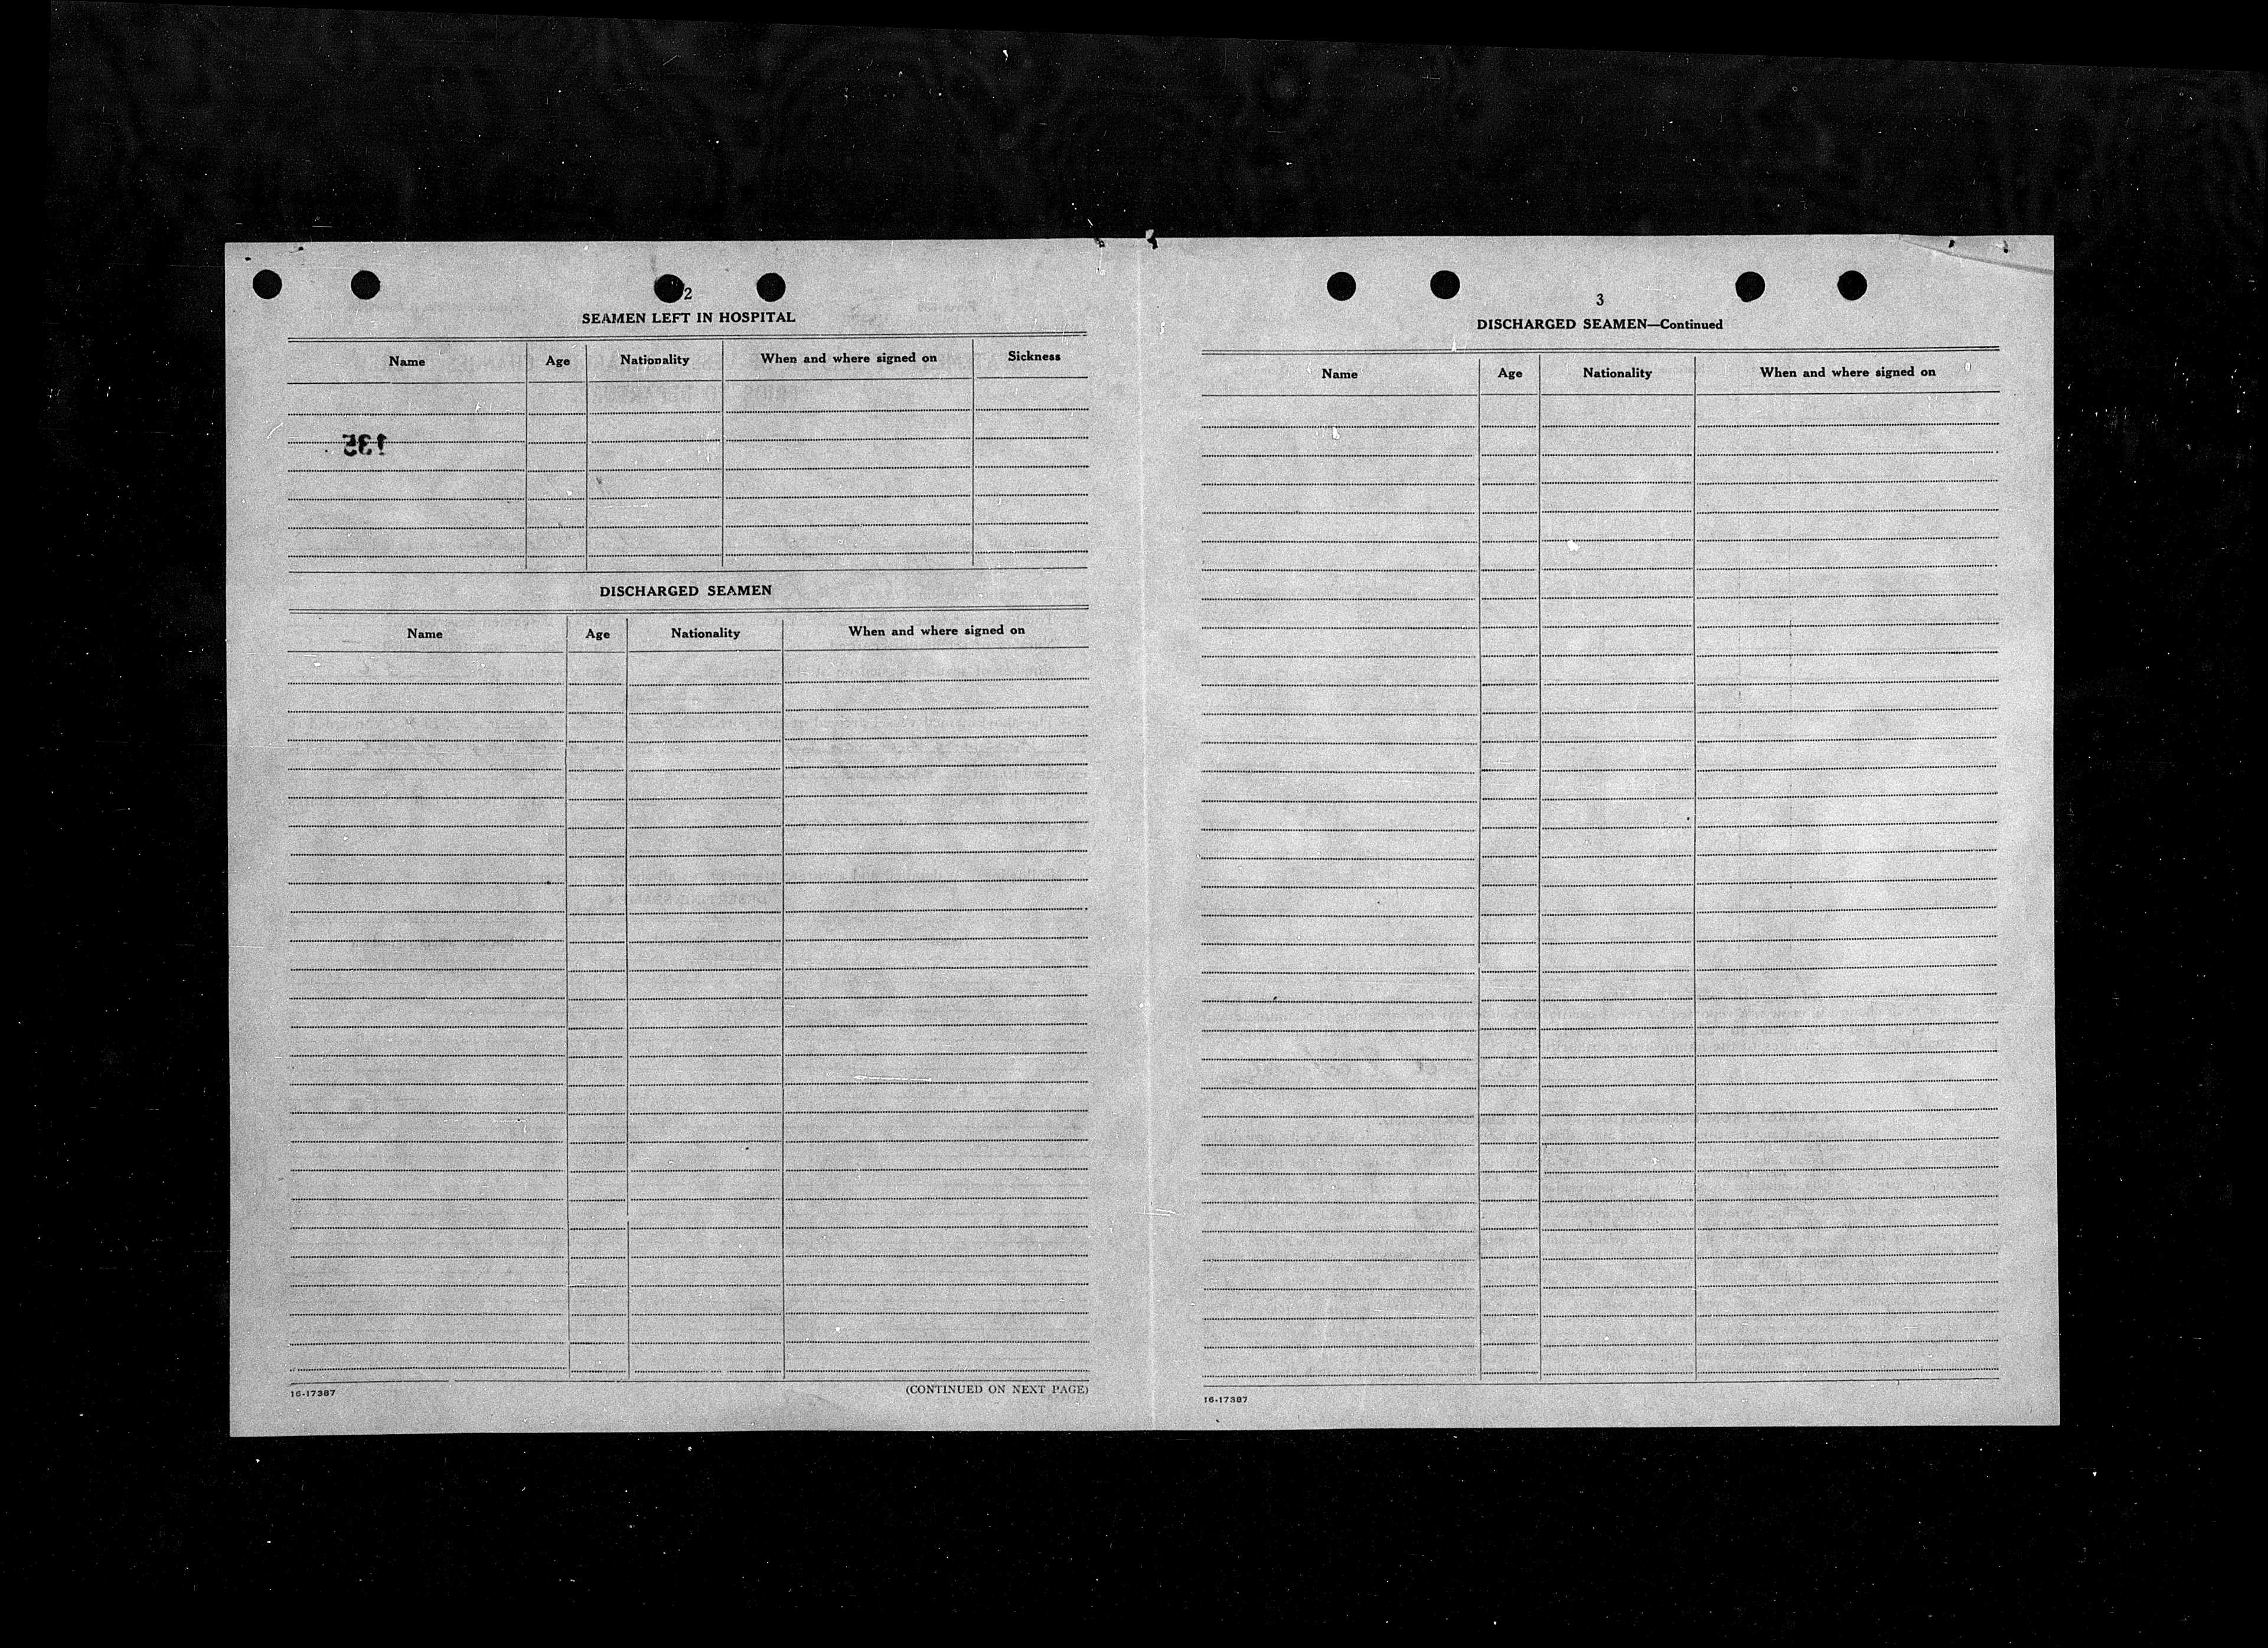 2
SEAMEN LEFT IN HOSPITAL
Name Age Nationality When and where signed on Sickness
135
DISCHARGED SEAMEN
Name Age Nationality When and where signed on
16-17387
(CONTINUED ON NEXT PAGE)
3
DISCHARGED SEAMEN—Continued
Name Age Nationality When and where signed on
16-17387